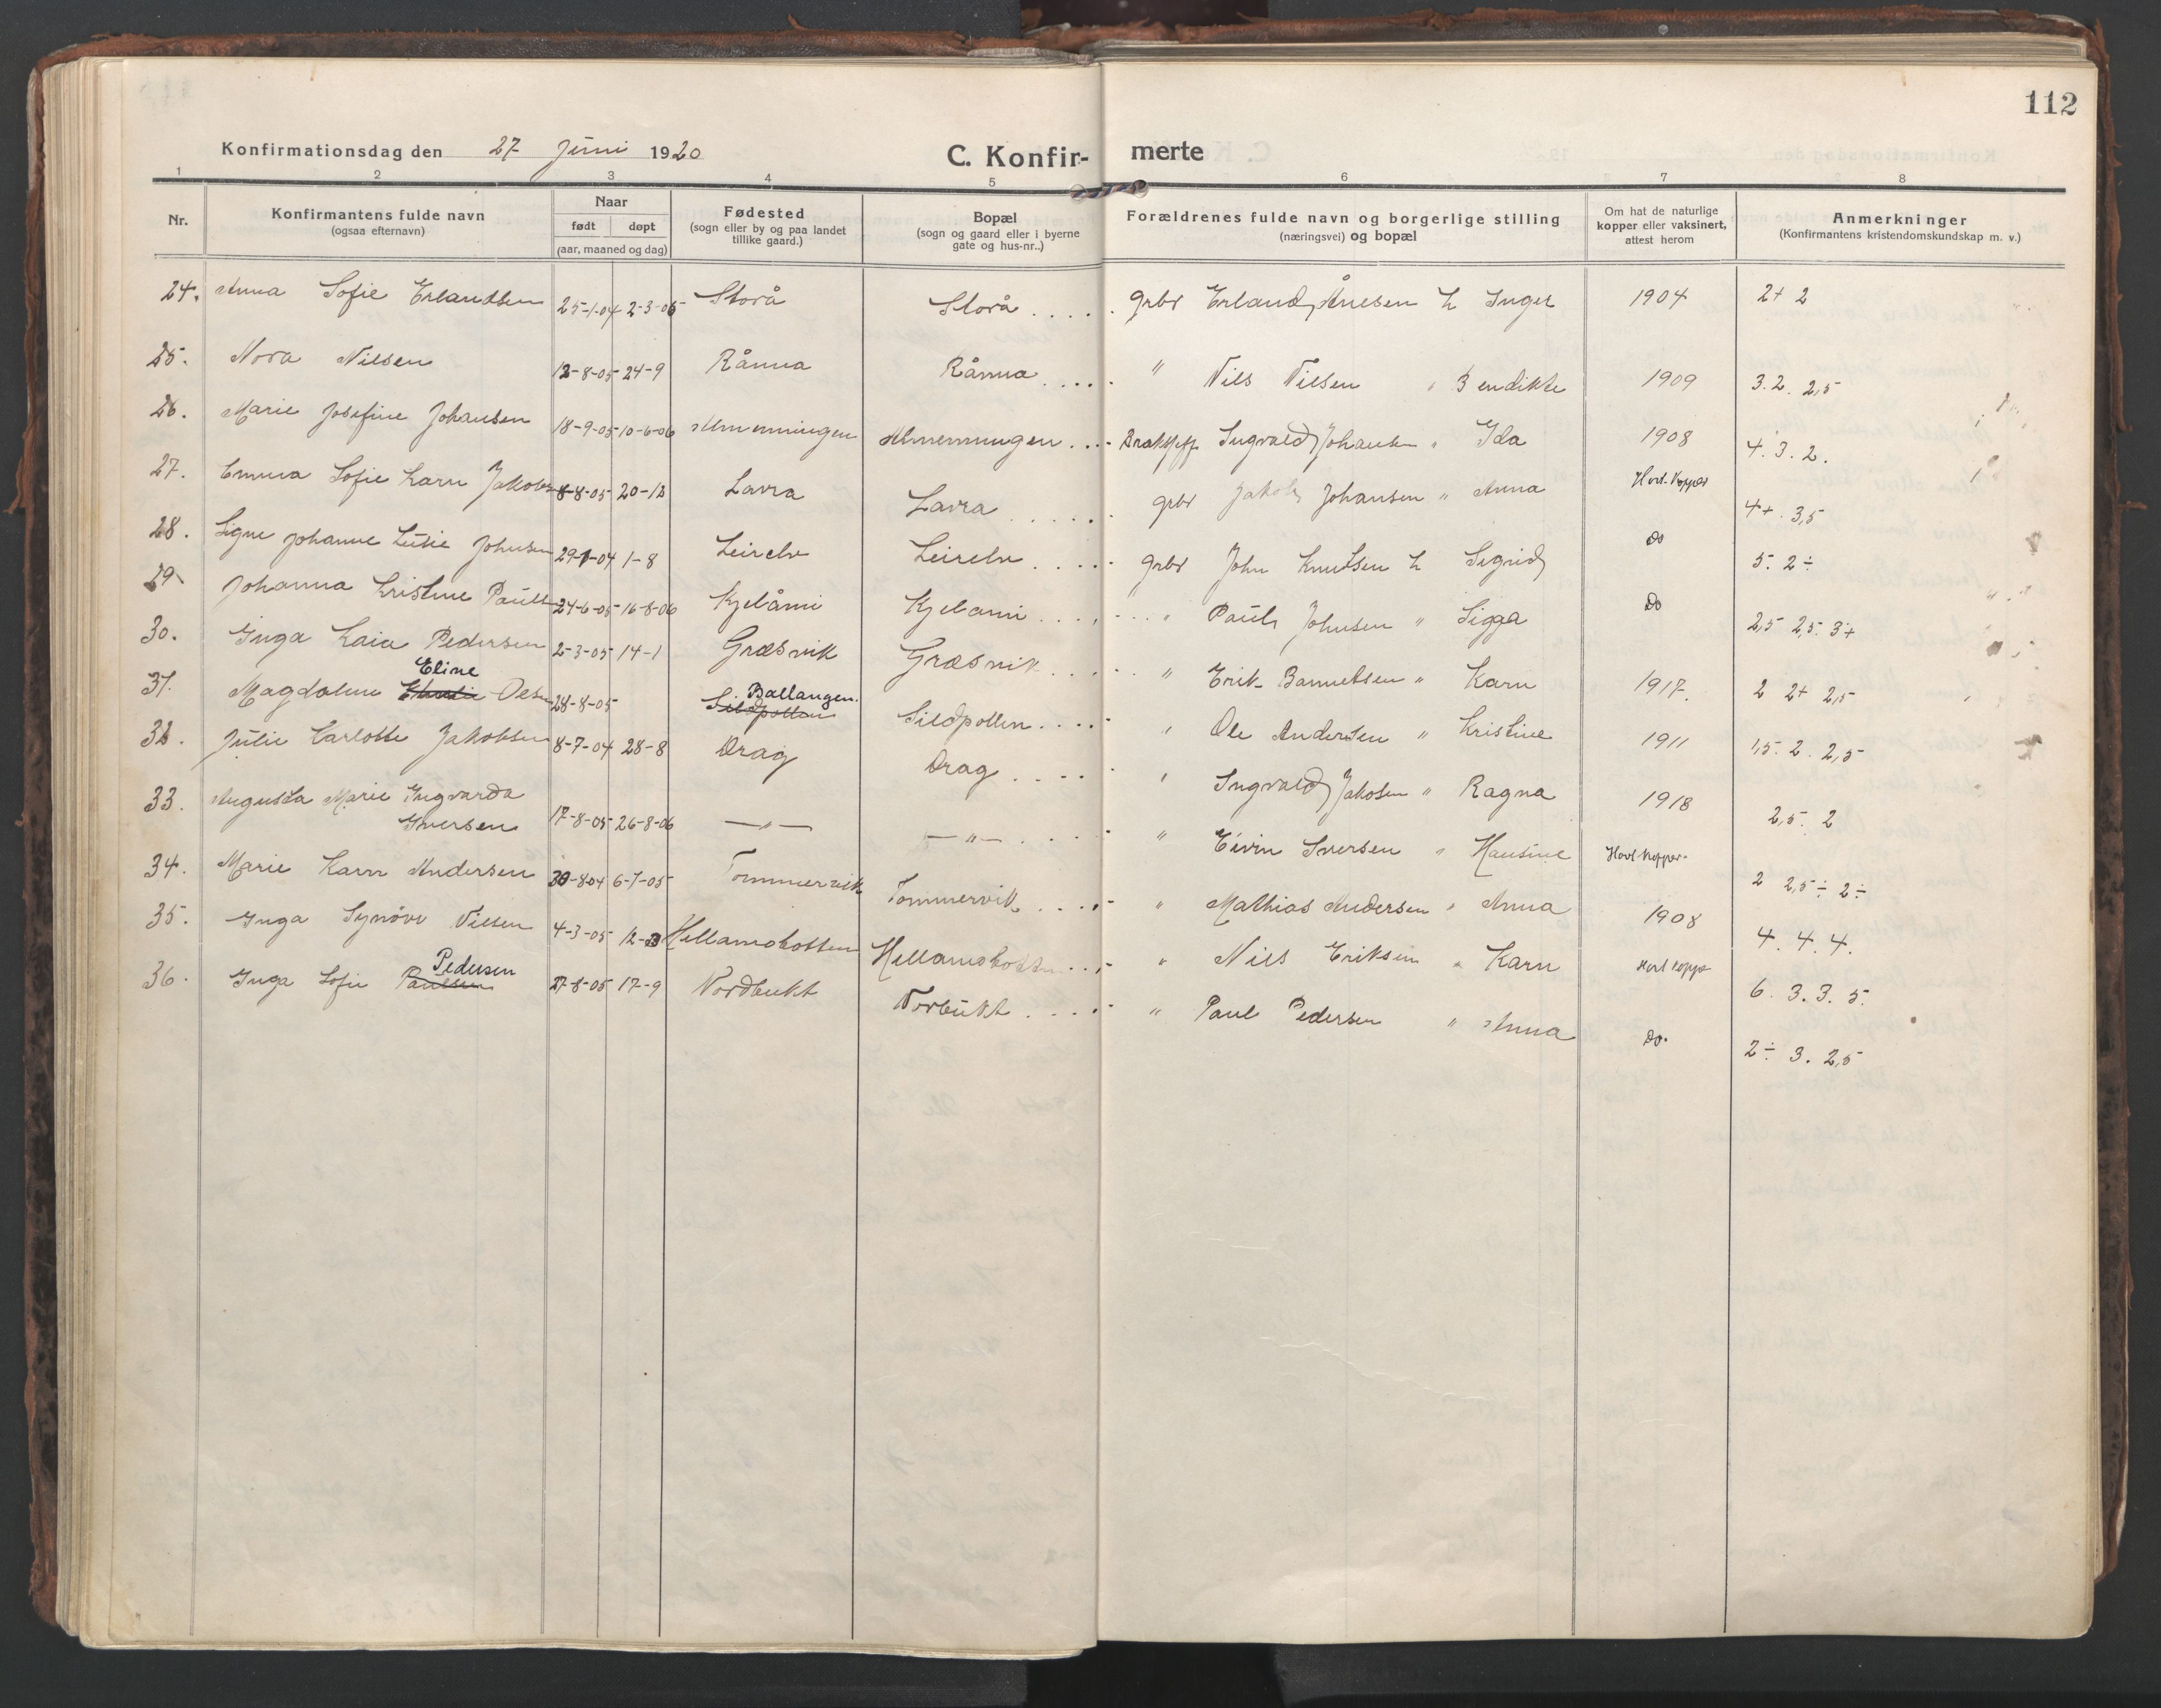 112
Konfirmationsdag den 27 Juni 1920 C. Konfir- merte
1 2 3 4 5 6 7 8
Nr. Konfirmantens fulde navn (ogsaa efternavn) Naar født døpt (aar, maaned og dag) Fødested (sogn eller by og paa landet tillike gaard.) Bopæl (sogn og gaard eller i byerne gate og hus-nr..) Forældrenes fulde navn og borgerlige stilling (næringsvei) og bopæl Om hat de naturlige kopper eller vaksinert, attest herom Anmerkninger (Konfirmantens kristendomskundskap m. v.)
24. Anna Sofie Erlandsen 25-1-04 2-3-05 Storå Storå .... grbr Erland Ånesen h Inger 1904 2+ 2
25. Nora Nilsen 12-8-05 24-9 Rånna Rånna .... " Nils Nilsen " Bendikte 1909 3. 2. 2,5
26. Marie Josefine Johansen 18-9-05 10-6-06 Almenningen Almenningen ... Ingvald Johansen " Ida 1908 4. 3. 2.
27. Emma Sofie Karn Jakobs 8-8-05 20-12 Lavra Lavra ..... grbr Jakob Johansen " Anna Havt Kopper 4+. 3,5
28. Signe Johanne Lusie Johnsen 29-1-04 1-8 Leirelv Leirelv .... grbr John Knutsen h Sigrid Do 5. 2÷
29. Johanna Kristine Pauls 24-6-05 16-8-06 Kjelåmi Kjelami .... " Paul Johnsen " Sigga Do 2,5 2,5. 3+
30. Inga Kaia Pedersen 2-3-05 14-1 Græsvik Græsvik .... " Erik Bannetsen " Karn 1917. 2 2+ 2,5
Eline Ballangen.
31. Magdalene Olsn 28-8-05 Sildpollen Sildpollen .... " Ole Andersen " Kristine 1911 1,5. 2. 2,5
32. Julie Karlotte Jakobsen 8-7-04 28-8 Drag Drag .... " Ingvald Jakobsen " Ragna 1918 2,5. 2
33. Augusta Marie Ingvarda
Iversen 17-8-05 26-8-06 —"— —"— ... " Eivin Iversen " Hansine Havt kopper. 2 2,5÷ 2÷
34. Marie Karn Andersen 30-8-04 6-7-05 Tommervik Tommervik .... " Mathias Andersen " Anna 1908 4. 4. 4.
35. Inga Synöve Nilsen 4-3-05 12-3 Hellamobotten Hellamobotten ... " Nils Eriksen " Karn Havt kopper 6. 3. 3. 5.
Pedersen
36. Inga Sofie Paulsen 27-8-05 17-9 Nordbukt Norbukt .... " Paul Pedersen " Anna Do. 2÷ 3. 2,5